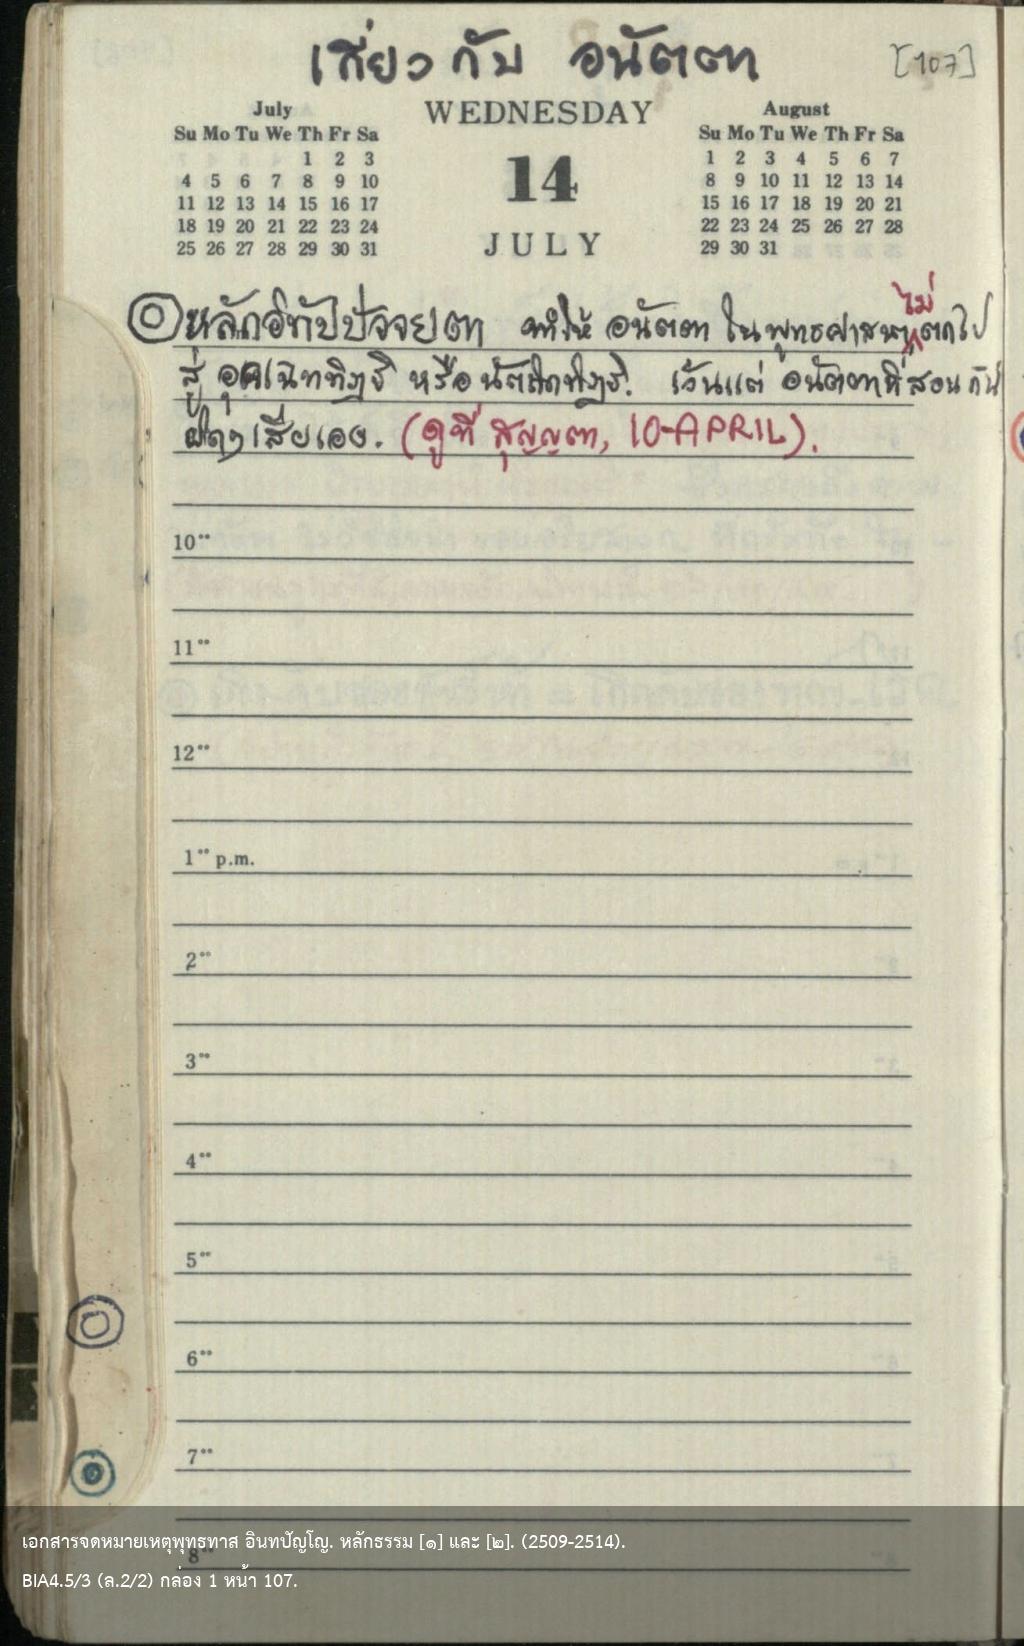 เกี่ยวกับ อนัตตา
[107]
July
Su Mo Tu We Th Fr Sa
1 2 3
4 5 6 7 8 9 10
11 12 13 14 15 16 17
18 19 20 21 22 23 24
25 26 27 28 29 30 31
WEDNESDAY
14
JULY
August
Su Mo Tu We Th Fr Sa
1 2 3 4 5 6 7
8 9 10 11 12 13 14
15 16 17 18 19 20 21
22 23 24 25 26 27 28
29 30 31
หลักอิทัปปัจจยตา ทำให้ อนัตตา ในพุทธศาสนาไม่ตกไป
สู่ อุคเฉิททิฏฐิ หรือ นัตถิกทิฏฐิ. เว้นแต่ อนัตตาที่สอนกัน
ผิดๆเสียเอง. (ดูที่ สุญญตา, 10-APRIL).
10°°
11°°
12°°
1°° p.m.
2°°
3°°
4°°
5°°
6°°
7°°
8°°
เอกสารจดหมายเหตุพุทธทาส อินทปัญโญ. หลักธรรม [๑] และ [๒]. (2509-2514).
BIA4.5/3 (ล.2/2) กล่อง 1 หน้า 107.